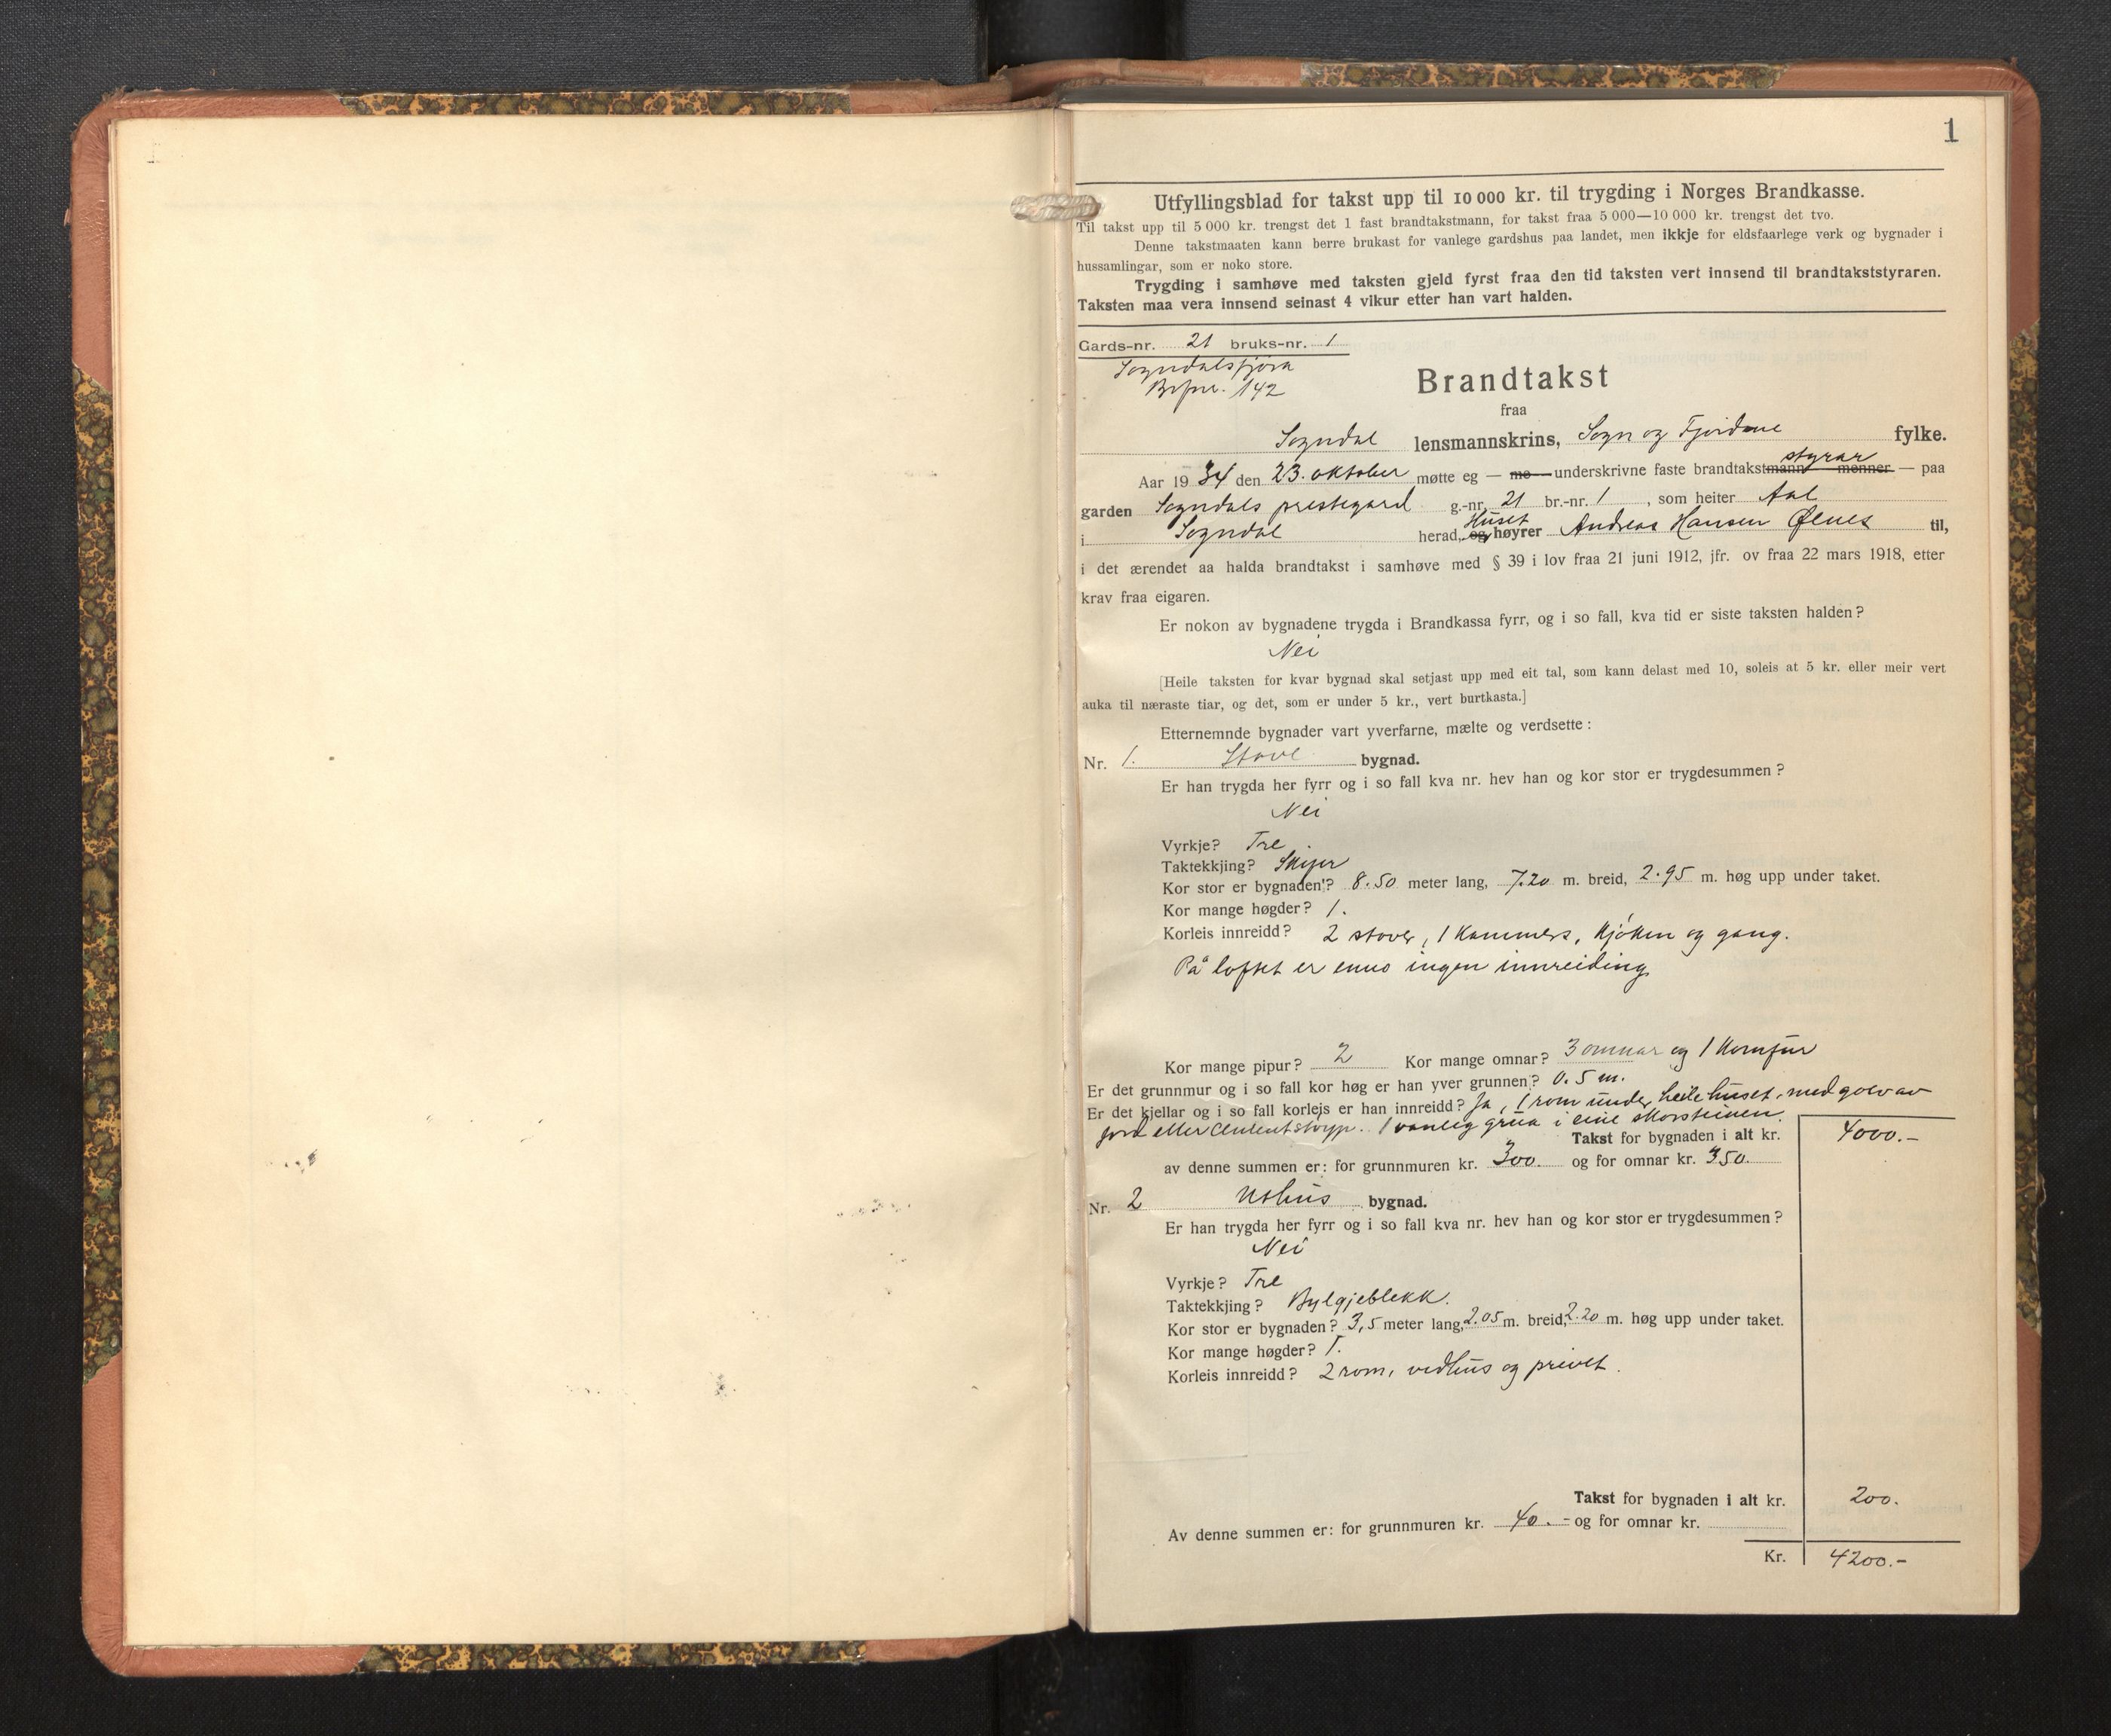 1
Utfyllingsblad for takst upp til 10 000 kr. til trygding i Norges Brandkasse.
Til takst upp til 5 000 kr. trengst det 1 fast brandtakstmann, for takst fraa 5 000—10 000 kr. trengst det tvo.
Denne takstmaaten kann berre brukast for vanlege gardshus paa landet, men ikkje for eldsfaarlege verk og bygnader i
hussamlingar, som er noko store.
Trygding i samhøve med taksten gjeld fyrst fraa den tid taksten vert innsend til brandtakststyraren.
Taksten maa vera innsend seinast 4 vikur etter han vart halden.
Gards-nr. 21 bruks-nr. 1
Sogndalsfjøra
Brfnr. 142
Brandtakst
fraa
Sogndal lensmannskrins, Sogn og Fjordane fylke.
styrar
Aar 1934 den 23. oktober møtte eg — me — underskrivne faste brandtakstmann — menner — paa
garden Sogndals prestegard g.-nr. 21 br.-nr. 1, som heiter Aal
Huset
i Sogndal herad, og høyrer Andreas Hansen Ølnes til,
i det ærendet aa halda brandtakst i samhøve med § 39 i lov fraa 21 juni 1912, jfr. ov fraa 22 mars 1918, etter
krav fraa eigaren.
Er nokon av bygnadene trygda i Brandkassa fyrr, og i so fall, kva tid er siste taksten halden?
Nei
[Heile taksten for kvar bygnad skal setjast upp med eit tal, som kann delast med 10, soleis at 5 kr. eller meir vert
auka til næraste tiar, og det, som er under 5 kr., vert burtkasta.]
Etternemnde bygnader vart yverfarne, mælte og verdsette:
Nr. 1. Stove bygnad.
Er han trygda her fyrr og i so fall kva nr. hev han og kor stor er trygdesummen?
Nei
Vyrkje? Tre
Taktekkjing? Skifer
Kor stor er bygnaden? 8.50 meter lang, 7.20 m. breid, 2.95 m. høg upp under taket.
Kor mange høgder? 1.
Korleis innreidd? 2 stover, 1 kammers, kjøken og gang.
På loftet er enno ingen innreiding
Kor mange pipur? 2 Kor mange omnar? 3 omnar og 1 komfur
Er det grunnmur og i so fall kor høg er han yver grunnen? 0.5 m.
Er det kjellar og i so fall korleis er han innreidd? Ja, 1 rom under heile huset, med golv av
jord eller cementstøyp. 1 vanleg grua i eine skorsteinen.
Takst for bygnaden i alt kr. 4000.-
av denne summen er: for grunnmuren kr. 300. og for omnar kr. 350.
Nr. 2 Uthus bygnad.
Er han trygda her fyrr og i so fall kva nr. hev han og kor stor er trygdesummen?
Nei
Vyrkje? Tre
Taktekkjing? Bylgjeblekk.
Kor stor er bygnaden? 3,5 meter lang, 2.05 m. breid, 2.20 m. høg upp under taket.
Kor mange høgder? 1.
Korleis innreidd? 2 rom, vedhus og privet.
Takst for bygnaden i alt kr. 200.
Av denne summen er: for grunnmuren kr. 40.- og for omnar kr.
Kr. 4200.-